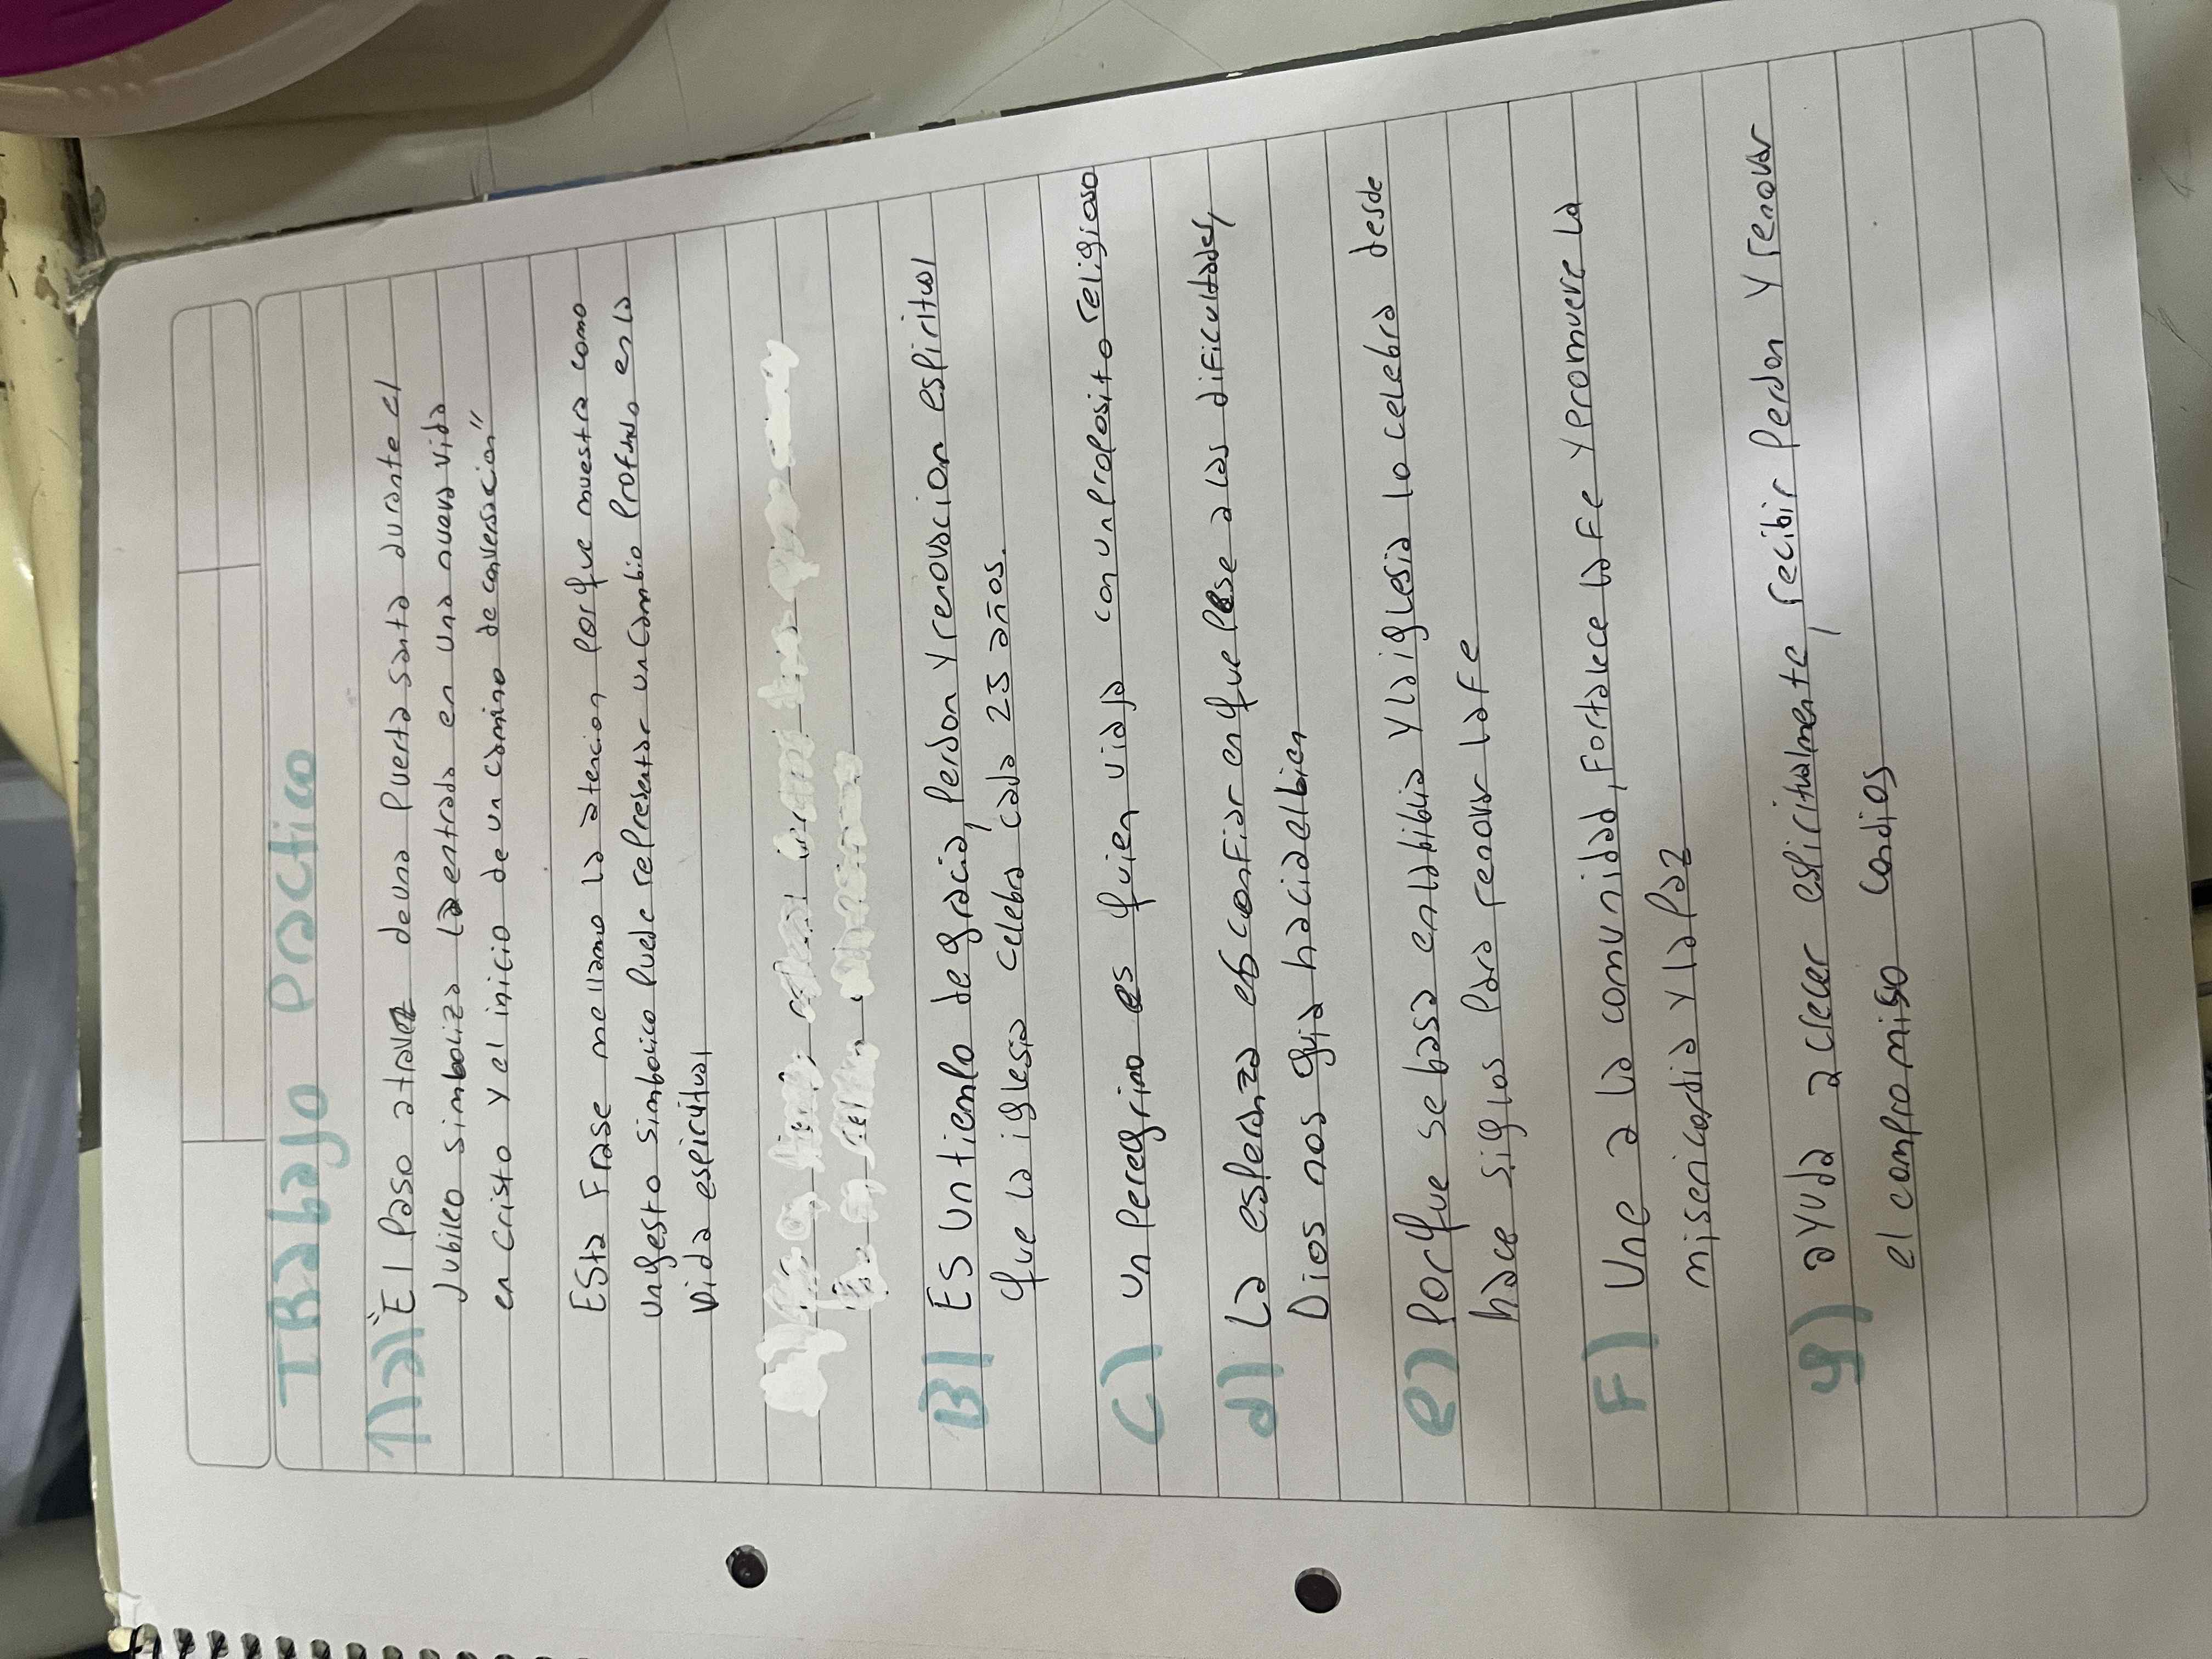 TRabajo Practico
1)a) "El Paso atravez de una Puerta santa durante el
Jubileo simboliza la entrada en una nueva vida
en cristo y el inicio de un camino de conversacion"
Esta Frase me llamo la atencion Porque muestra como
un gesto simbolico Puede representar un cambio Profundo en la
vida espiritual
B) Es un tiempo de gracia, Perdon y renovacion espiritual
que la iglesia celebra cada 25 años.
C) un Peregrino es quien viaja con un proposito religioso
d) La esperanza es confiar en que Pese a las dificultades,
Dios nos guia hacia el bien
e) Porque se basa en la biblia y la iglesia lo celebra desde
hace siglos Para renovar la fe
F) Une a la comunidad, Fortalece la Fe y Promueve la
misericordia y la Paz
g) ayuda a crecer espiritualmente, recibir Perdon y renovar
el compromiso con dios